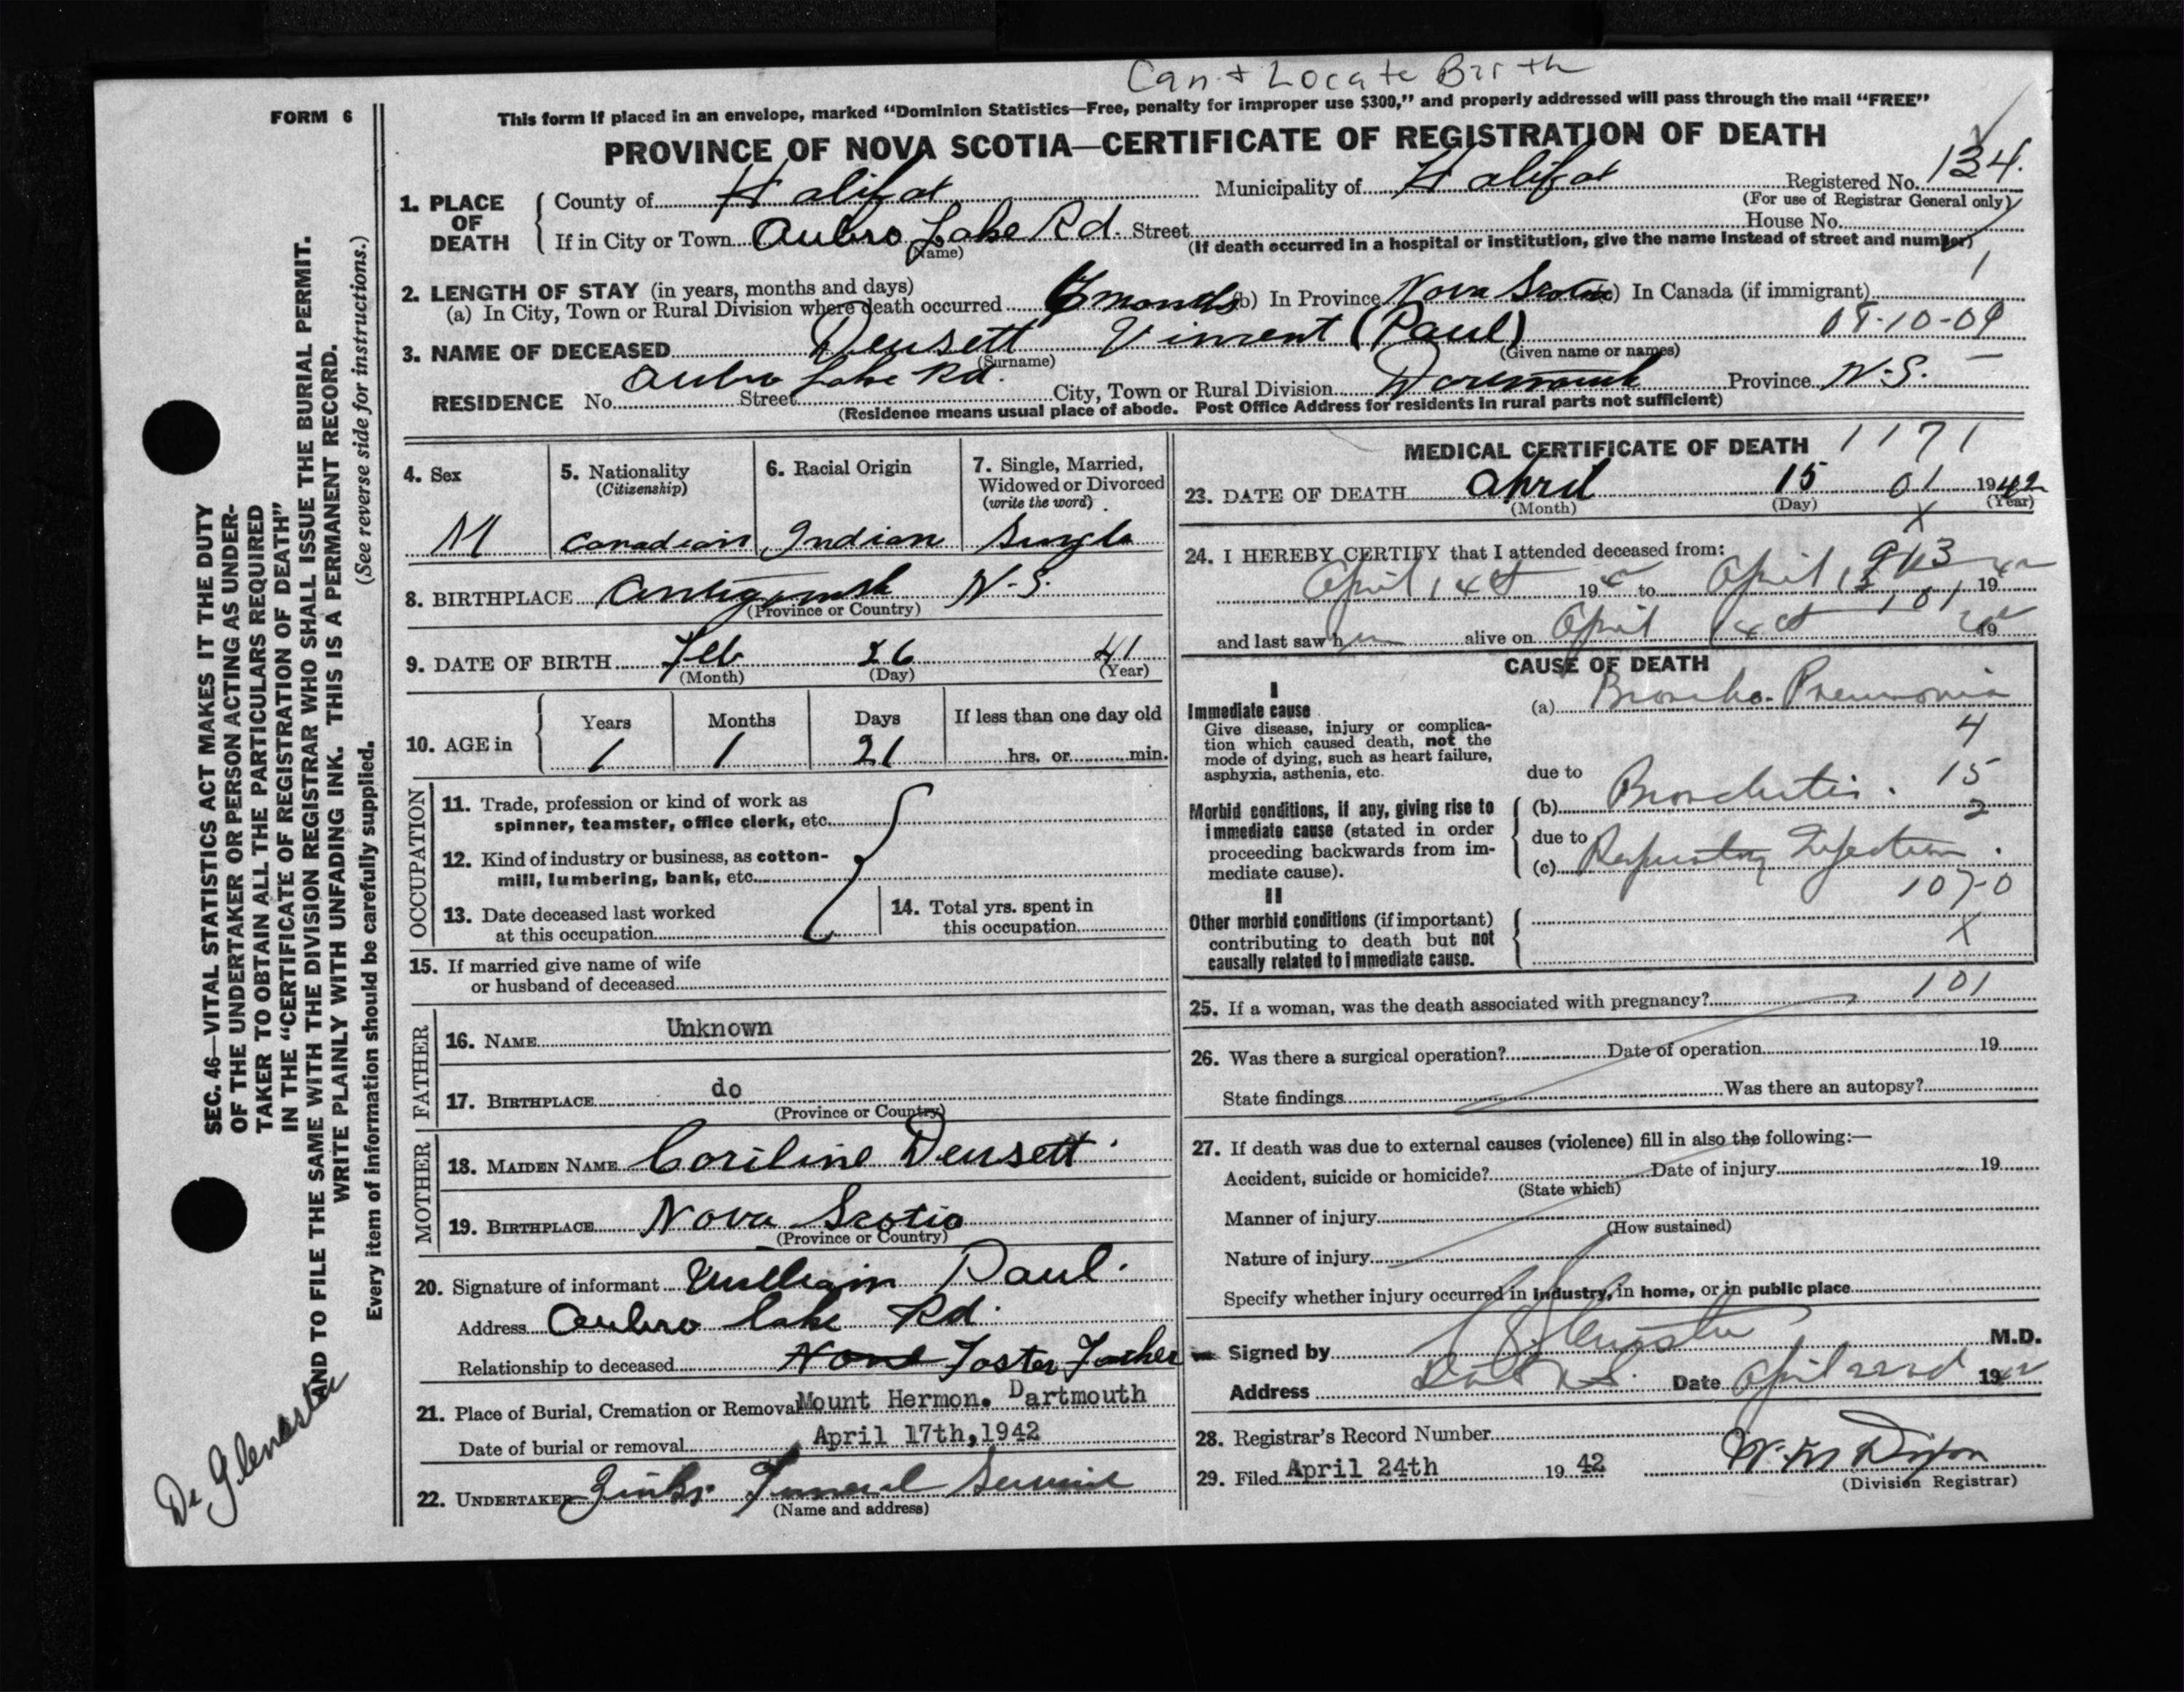 Can't Locate Birth
FORM 6
This form if placed in an envelope, marked "Dominion Statistics—Free, penalty for improper use $300," and properly addressed will pass through the mail "FREE"
PROVINCE OF NOVA SCOTIA—CERTIFICATE OF REGISTRATION OF DEATH
1. PLACE OF DEATH
County of Halifax Municipality of Halifax Registered No. 134.
(For use of Registrar General only)
If in City or Town Lake Rd. Street House No.
(Name) (If death occurred in a hospital or institution, give the name instead of street and number)
1
2. LENGTH OF STAY (in years, months and days)
(a) In City, Town or Rural Division where death occurred 6 months (b) In Province Nova Scotia (c) In Canada (if immigrant)
3. NAME OF DECEASED Deusett Vincent (Paul) 08-10-09
(Surname) (Given name or names)
RESIDENCE No. Lake Rd. Street City, Town or Rural Division Dartmouth Province N.S.
(Residence means usual place of abode. Post Office Address for residents in rural parts not sufficient)
4. Sex
M
5. Nationality
(Citizenship)
Canadian
6. Racial Origin
Indian
7. Single, Married,
Widowed or Divorced
(write the word)
Single
8. BIRTHPLACE Antigonish N-S.
(Province or Country)
9. DATE OF BIRTH Feb 26 41
(Month) (Day) (Year)
10. AGE in
Years Months Days If less than one day old
1 1 21 hrs. or min.
OCCUPATION
11. Trade, profession or kind of work as
spinner, teamster, office clerk, etc.
12. Kind of industry or business, as cotton-
mill, lumbering, bank, etc.
13. Date deceased last worked
at this occupation
14. Total yrs. spent in
this occupation
15. If married give name of wife
or husband of deceased
FATHER
16. NAME Unknown
17. BIRTHPLACE do
(Province or Country)
MOTHER
18. MAIDEN NAME Coriline Deusett
19. BIRTHPLACE Nova Scotia
(Province or Country)
20. Signature of informant William Paul.
Address Lake Rd.
Relationship to deceased None Foster Father
21. Place of Burial, Cremation or Removal Mount Hermon. Dartmouth
Date of burial or removal April 17th, 1942
22. UNDERTAKER Funeral Service
(Name and address)
MEDICAL CERTIFICATE OF DEATH 1171
23. DATE OF DEATH April 15 01 1942
(Month) (Day) (Year)
X
24. I HEREBY CERTIFY that I attended deceased from:
April 14th 1942 to April 19
101
and last saw him alive on April 14th 19
CAUSE OF DEATH
I
Immediate cause
Give disease, injury or complica-
tion which caused death, not the
mode of dying, such as heart failure,
asphyxia, asthenia, etc.
(a) Broncho-Pneumonia
4
due to
15
Morbid conditions, if any, giving rise to
immediate cause (stated in order
proceeding backwards from im-
mediate cause).
(b) Bronchitis.
2
due to
(c) Respiratory Infection.
107-0
II
Other morbid conditions (if important)
contributing to death but not
causally related to immediate cause.
X
25. If a woman, was the death associated with pregnancy? 101
26. Was there a surgical operation? Date of operation 19
State findings Was there an autopsy?
27. If death was due to external causes (violence) fill in also the following:—
Accident, suicide or homicide? Date of injury 19
(State which)
Manner of injury
(How sustained)
Nature of injury
Specify whether injury occurred in industry, in home, or in public place
Signed by M.D.
Address Date April 22nd 1942
28. Registrar's Record Number
29. Filed April 24th 19 42 W. M. Dixon
(Division Registrar)
SEC. 46—VITAL STATISTICS ACT MAKES IT THE DUTY
OF THE UNDERTAKER OR PERSON ACTING AS UNDER-
TAKER TO OBTAIN ALL THE PARTICULARS REQUIRED
IN THE "CERTIFICATE OF REGISTRATION OF DEATH"
AND TO FILE THE SAME WITH THE DIVISION REGISTRAR WHO SHALL ISSUE THE BURIAL PERMIT.
WRITE PLAINLY WITH UNFADING INK. THIS IS A PERMANENT RECORD.
(See reverse side for instructions.)
Every item of information should be carefully supplied.
Dr Glenister